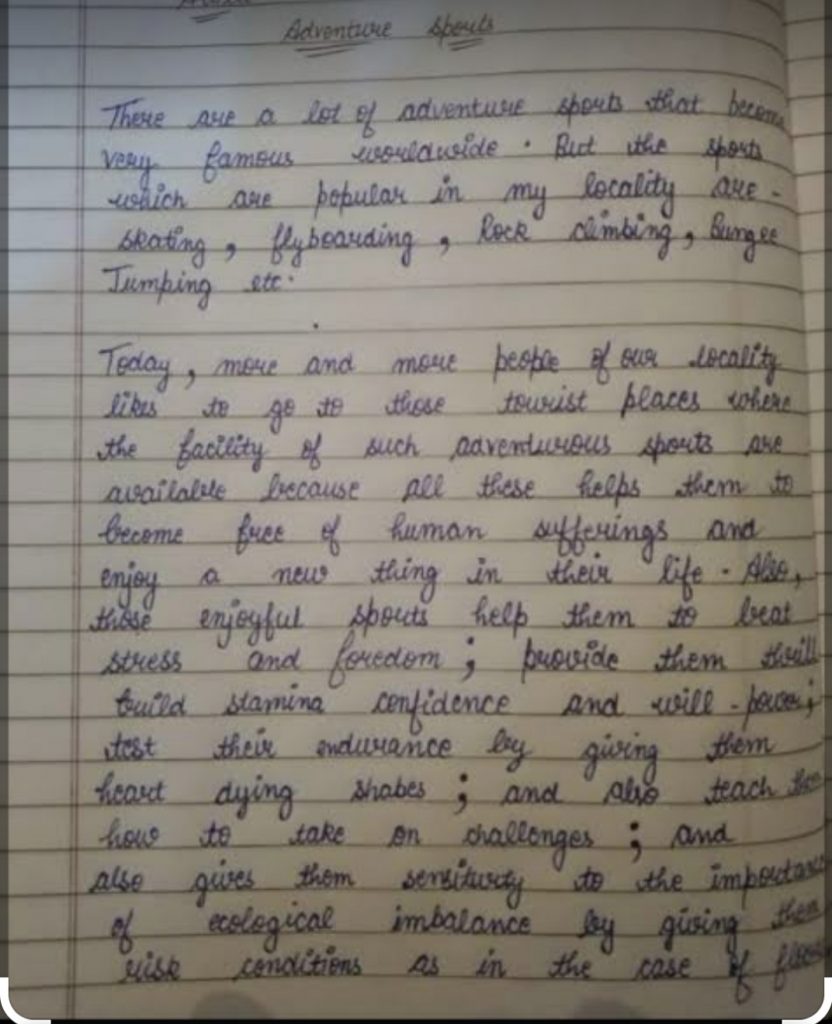 Adventure Sports
There are a lot of adventure sports that become
very famous worldwide. But the sports
which are popular in my locality are -
skating, flyboarding, Rock climbing, Bungee
Jumping etc.
Today, more and more people of our locality
likes to go to those tourist places where
the facility of such adventurous sports are
available because all these helps them to
become free of human sufferings and
enjoy a new thing in their life. Also,
those enjoyful sports help them to beat
stress and foredom; provide them thrill
build stamina confidence and will-power;
test their endurance by giving them
heart dying shabes; and also teach them
how to take on challenges; and
also gives them sensitivity to the importance
of ecological imbalance by giving them
risk conditions as in the case of